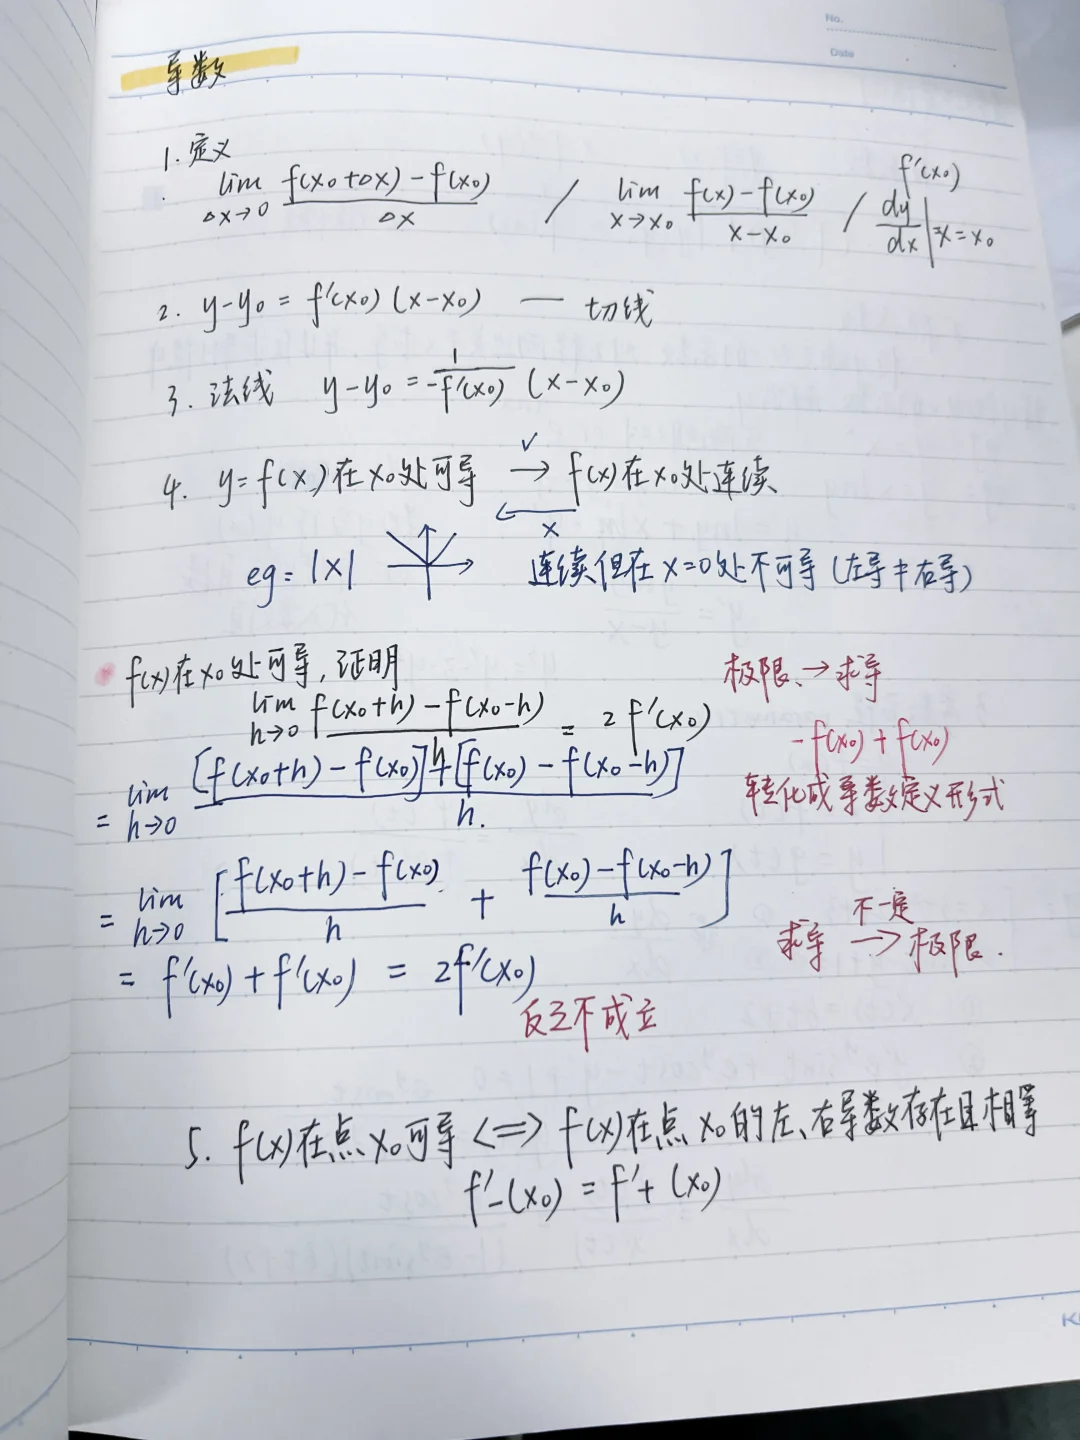 No.
Date
导数
1. 定义
lim Δx→0 f(x₀+Δx)-f(x₀) / Δx / lim x→x₀ f(x)-f(x₀) / x-x₀ / f'(x₀) dy/dx | x=x₀
2. y-y₀ = f'(x₀) (x-x₀) — 切线
3. 法线 y-y₀ = 1/-f'(x₀) (x-x₀)
4. y=f(x)在x₀处可导 →√ f(x)在x₀处连续
← x
eg: |x| 连续但在x=0处不可导 (左导≠右导)
f(x)在x₀处可导, 证明
极限 → 求导
lim h→0 f(x₀+h)-f(x₀-h) / h = 2f'(x₀)
-f(x₀)+f(x₀)
= lim h→0 [f(x₀+h)-f(x₀)]+[f(x₀)-f(x₀-h)] / h.
转化成导数定义形式
= lim h→0 [ f(x₀+h)-f(x₀) / h + f(x₀)-f(x₀-h) / h ]
求导 不一定→ 极限.
= f'(x₀)+f'(x₀) = 2f'(x₀)
反之不成立
5. f(x)在点x₀可导 <=> f(x)在点x₀的左、右导数存在且相等
f'-(x₀) = f'+(x₀)